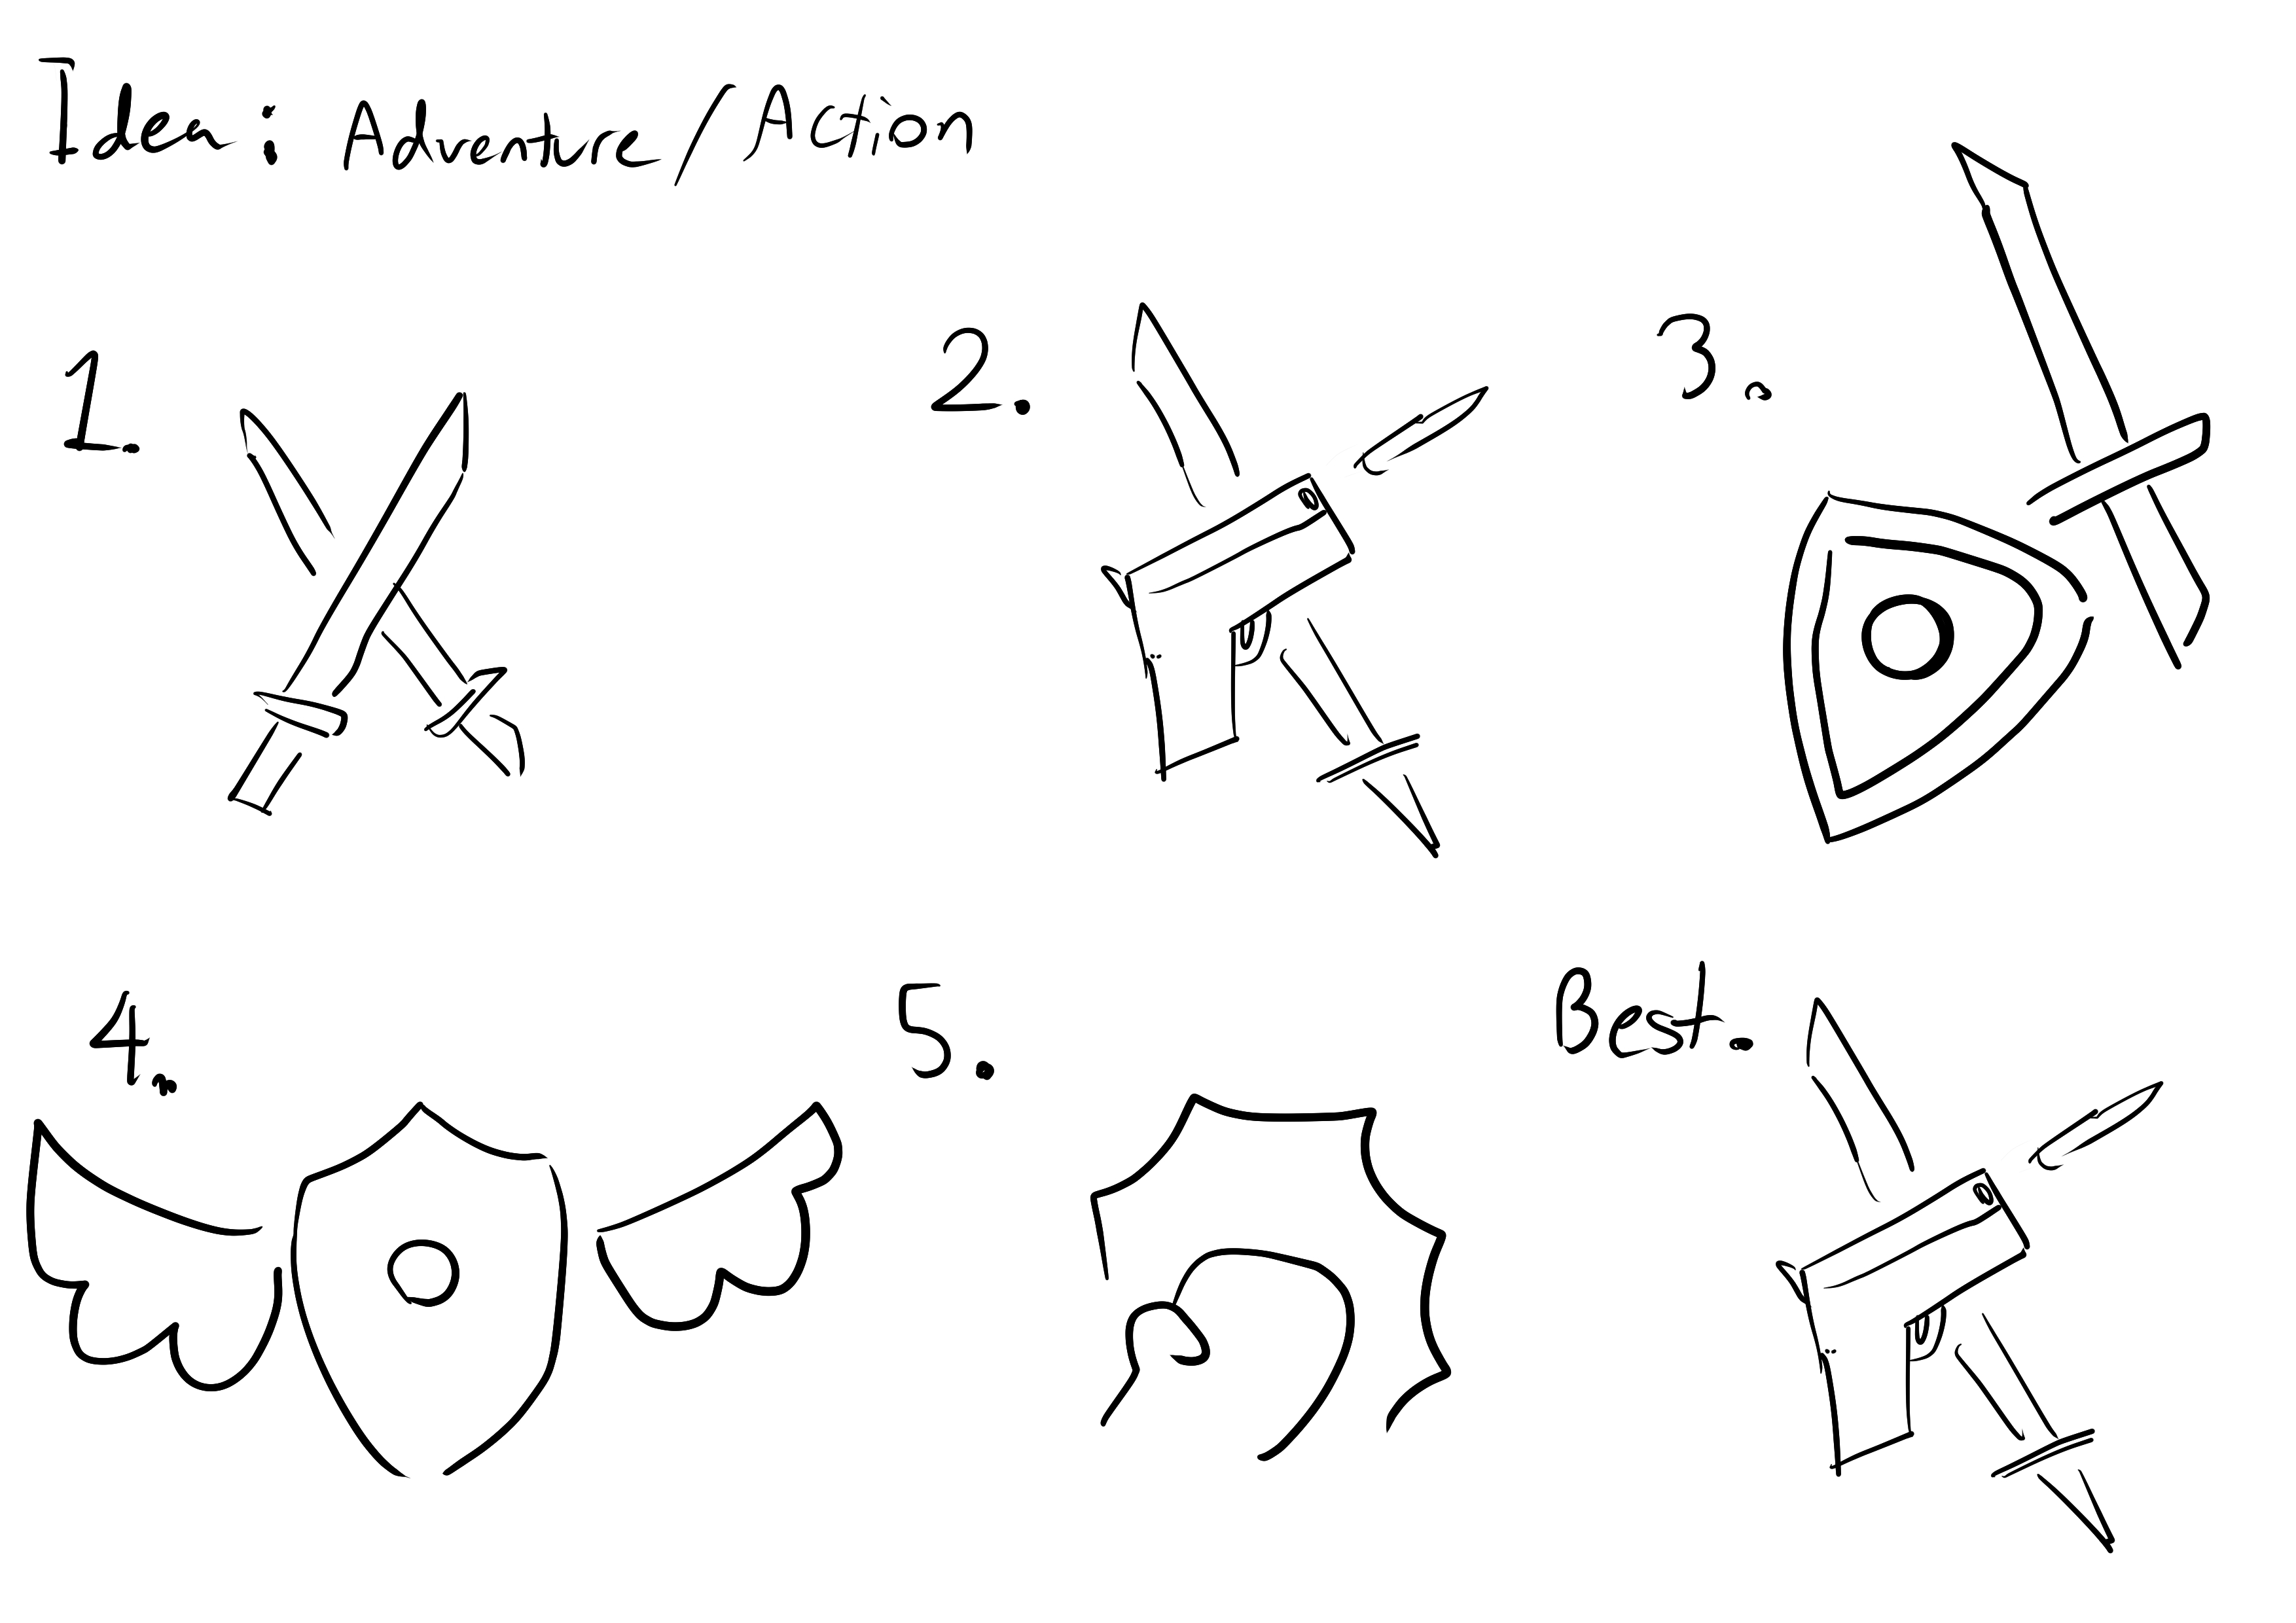 Idea: Adventure/Action
1.
2.
3.
4.
5.
Best.